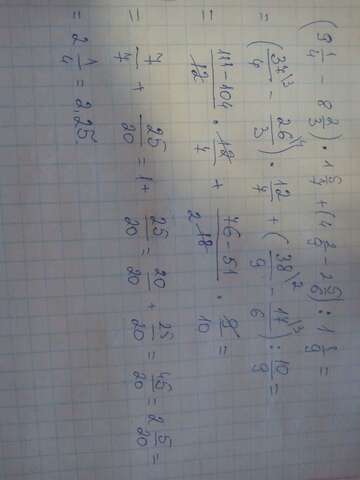 (9 1/4 - 8 2/3) · 1 5/7 + (4 2/9 - 2 5/6) : 1 1/9 =
= (37\3/4 - 26\4/3) · 12/7 + (38\2/9 - 17\3/6) : 10/9 =
= 111-104/12 · 12/7 + 76-51/2 18 · 9/10 =
= 7/7 + 25/20 = 1 + 25/20 = 20/20 + 25/20 = 45/20 = 2 5/20 =
= 2 1/4 = 2,25.